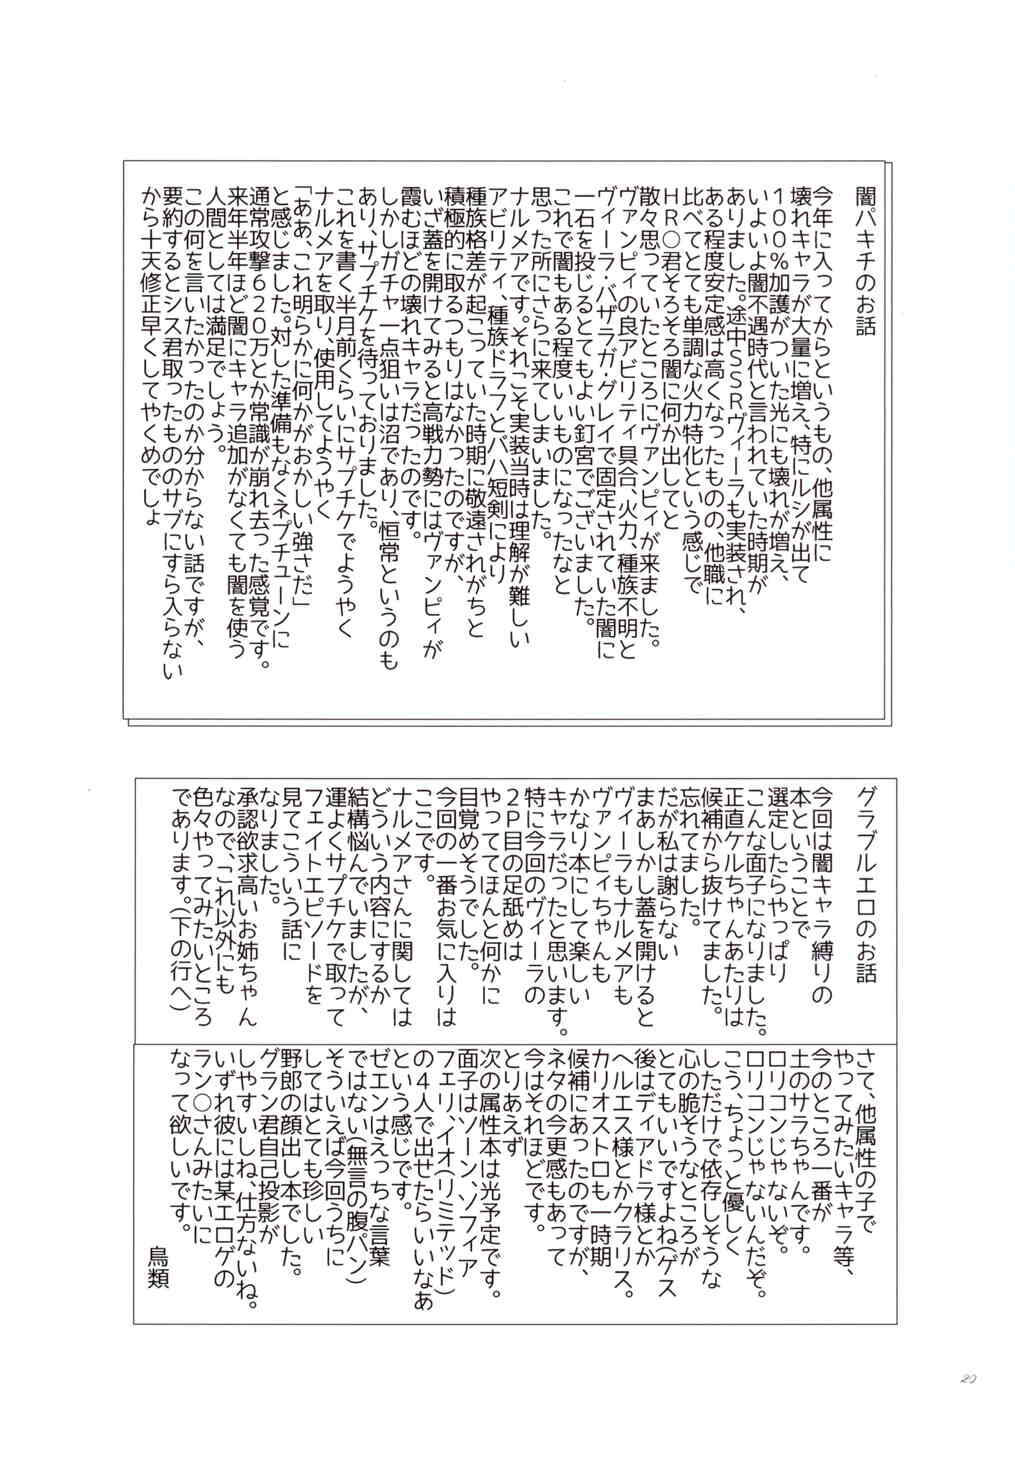 闇パキチのお話
今年に入ってからというもの、他属性に
壊れキャラが大量に増え、特にルシが出て
100%加護がついた光にも壊れが増え、
いよいよ闇不遇時代と言われていた時期が
ありました。途中SSRヴィーラも実装され、
ある程度安定感は高くなったものの、他職に
比べてとても単調な火力特化という感じで
HR○君そろそろ闇に何か出してと
散々思っていたところにヴァンピィが来ました。
ヴァンピィの良アビリティ具合、火力、種族不明と
ヴィーラ・バザラガ・グレイで固定されていた闇に
一石を投じるとてもよい釘宮でございました。
これで闇もある程度いいものになったなと
思った所にさらに来てしまいました。
ナルメアです。それこそ実装当時は理解が難しい
アビリティ、種族ドラフとバハ短剣により
種族格差が起こっていた時期に敬遠されがちと
積極的に取るつもりはなかったのですが、
いざ蓋を開けてみると高戦力勢にはヴァンピィが
霞むほどの壊れキャラだったのです。
しかしガチャ一点狙いは沼であり、恒常というのも
あり、サプチケを待っておりました。
これを書く半月前くらいにサプチケでようやく
ナルメアを取り、使用してようやく
「ああ、これ明らかに何かがおかしい強さだ」
と感じました。対した準備もなくネプチューンに
通常攻撃620万とか常識が崩れ去った感覚です。
来年半年ほど闇にキャラ追加がなくても闇を使う
人間としては満足でしょう。
この何を言いたかったのか分からない話ですが、
要約するとシス君取ったもののサブにすら入らない
から十天修正早くしてやくめでしょ
グラブルエロのお話
今回は闇キャラ縛りの
本ということで
選定したらやっぱり
こんな面子になりました。
正直ケルちゃんあたりは
候補から抜けてました。
忘れてました。
だが私は謝らない
まあしかし蓋を開けると
ヴィーラもナルメアも
ヴァンピィちゃんも
かなり本にして楽しい
キャラだったと思います。
特に今回のヴィーラの
2P目の足舐めは
やっててほんと何かに
目覚めそうでした。
今回の一番お気に入りは
ここです。
ナルメアさんに関しては
どういう内容にするか
結構悩んでいましたが、
運よくサプチケで取って
フェイトエピソードを
見てこういう話に
なりました。
承認欲求高いお姉ちゃん
なので、これ以外にも
色々やってみたいところ
であります。(下の行へ)
さて、他属性の子で
やってみたいキャラ等、
今のところ一番が
土のサラちゃんです。
ロリコンじゃないぞ。
ロリコンじゃないんだぞ。
こう、ちょっと優しく
しただけで依存しそうな
心の脆そうなところが
とてもいいですよね(ゲス
後はディアドラ様とか
ヘルエス様とかクラリス。
カリオストロも一時期
候補にあったのですが、
ネタの今更感もあって
今はそれほどです。
とりあえず
次の属性本は光予定です。
面子はソーン、ソフィア
フェリ、イオ(リミテッド)
の4人で出せたらいいなあ
という感じです。
ゼエンはえっちな言葉
ではない(無言の腹パン)
そういえば今回うちに
してはとても珍しい
野郎の顔出し本でした。
グラン君自己投影が
しやすいしね、仕方ないね。
いずれ彼には某エロゲの
ラン○さんみたいに
なって欲しいです。
鳥類
20